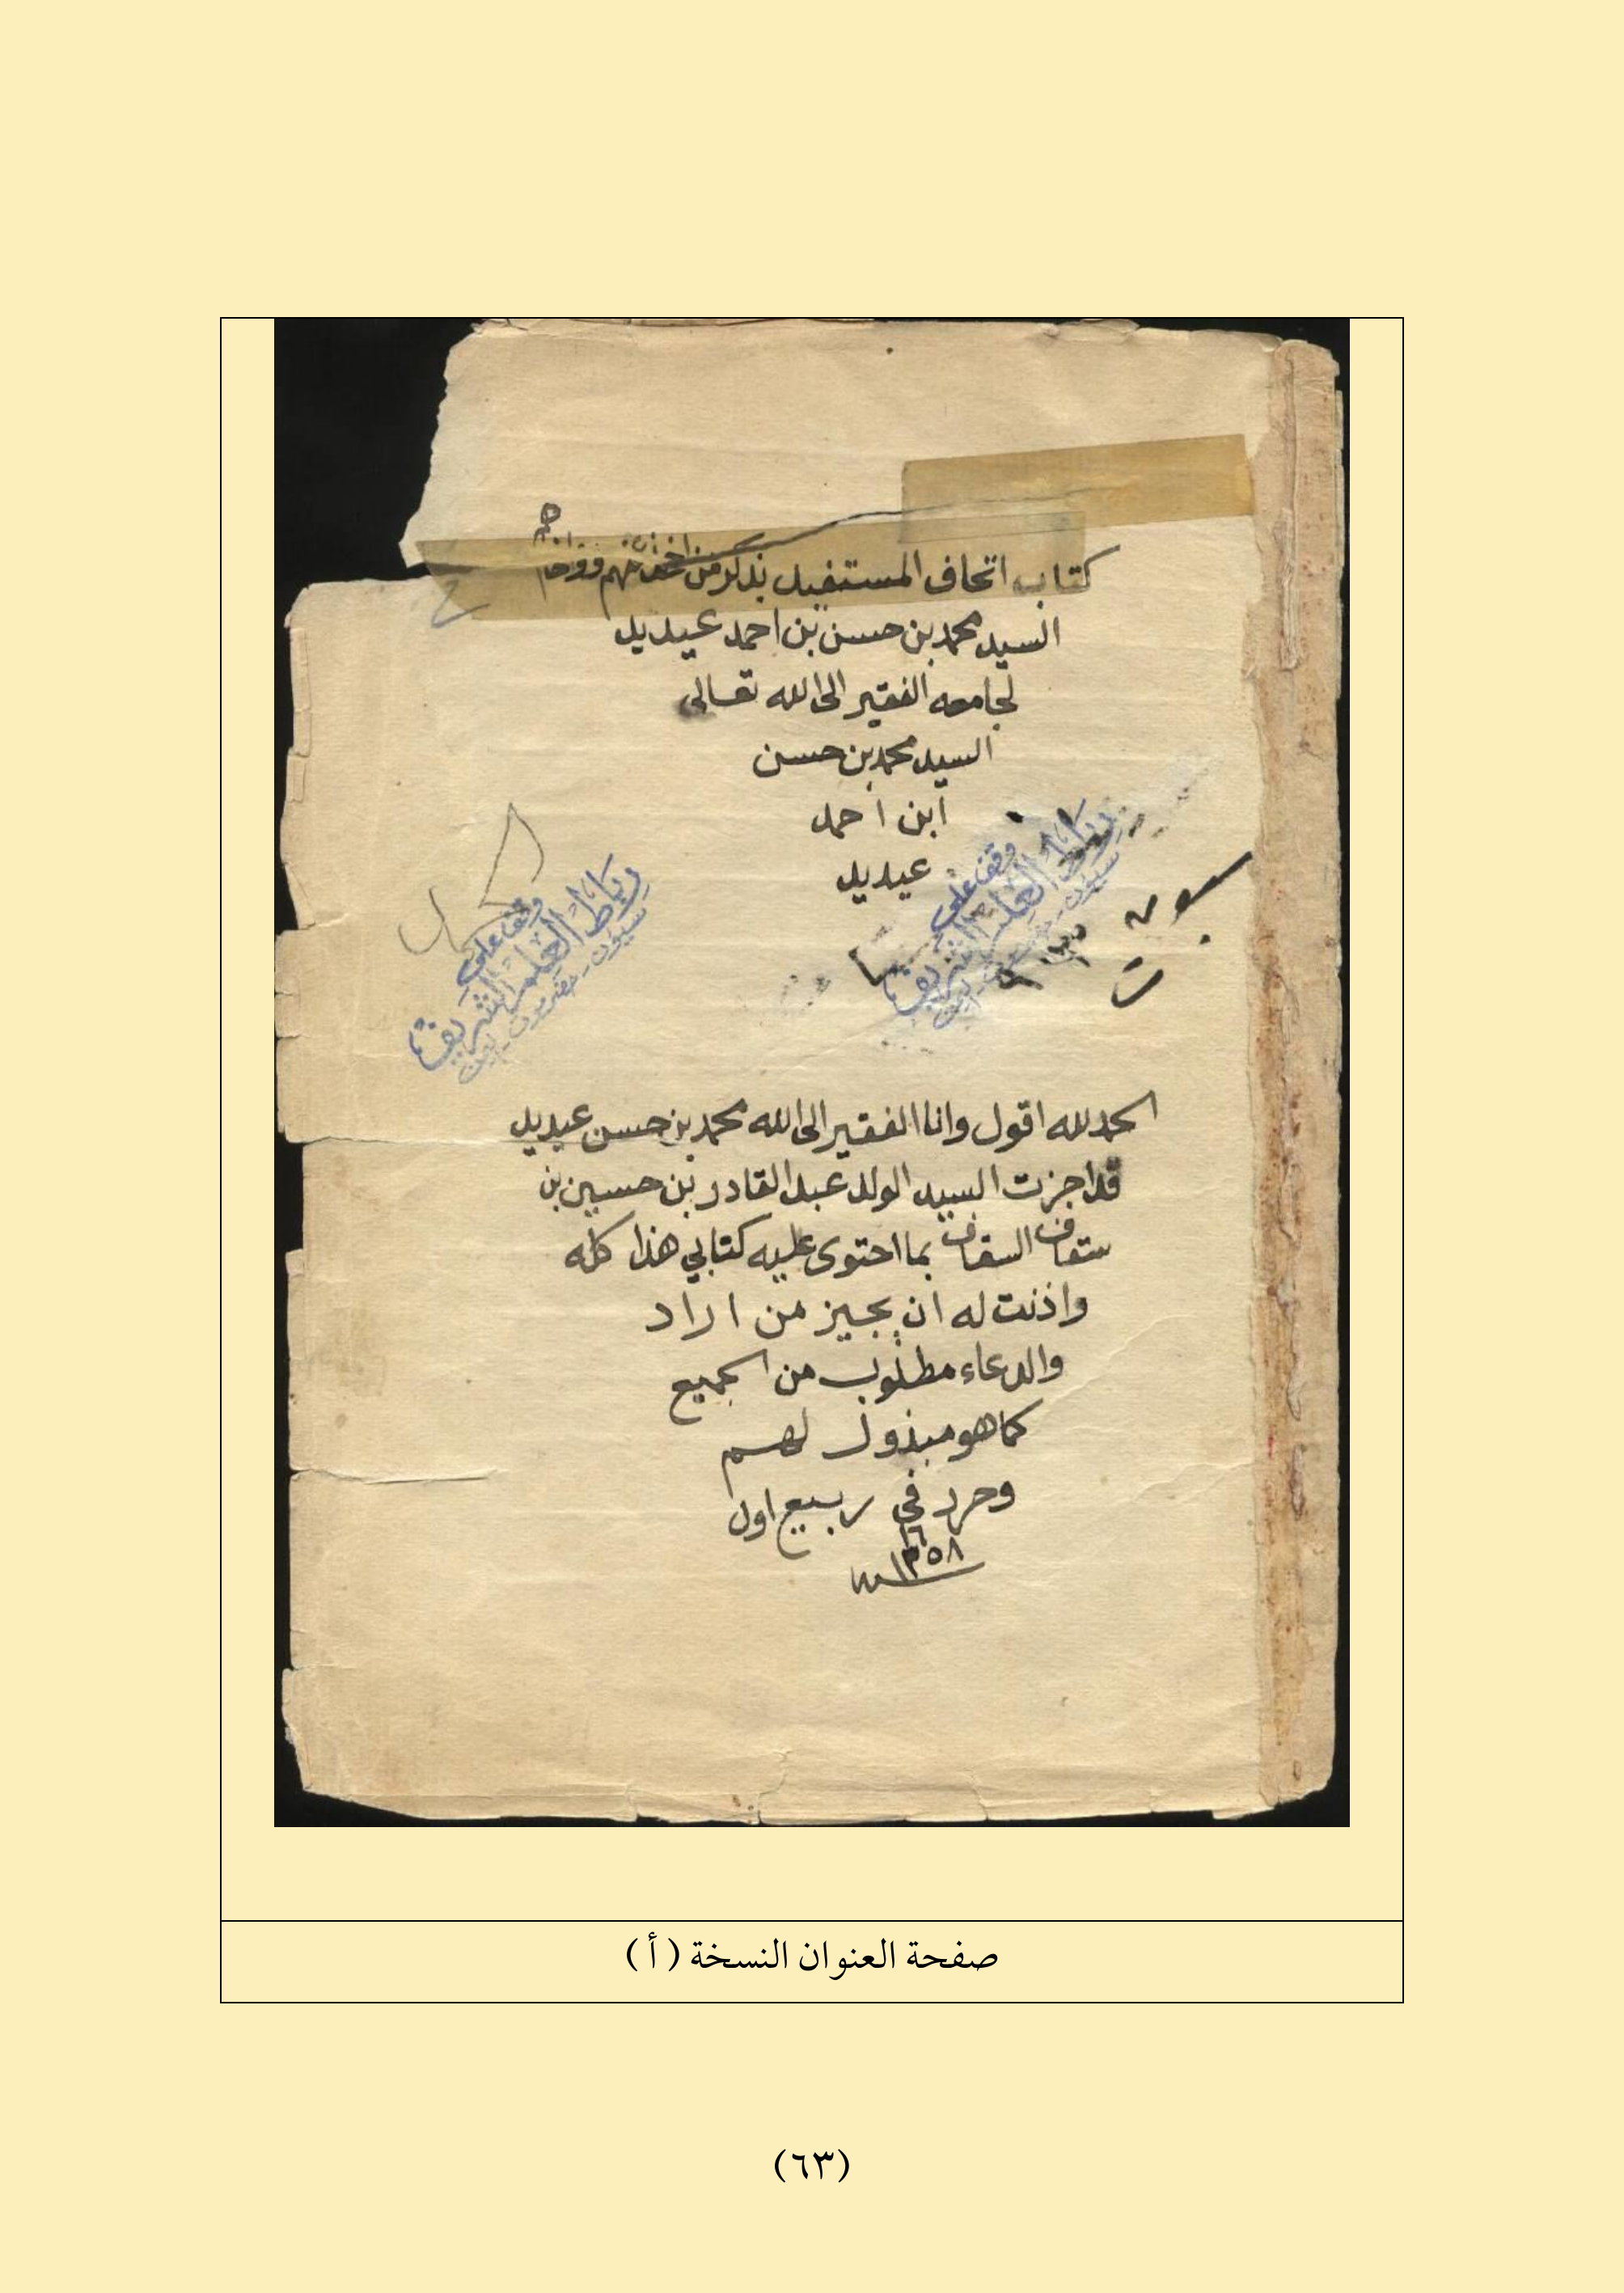 كتاب اتحاف المستفيد بذكر من اخذ عنهم
السيد محمد بن حسن بن احمد عيديد
لجامعه الفقير الى الله تعالى
السيد محمد بن حسن
ابن احمد
عيديد
وقف على
رباط العلم الشريف
سيؤن - حضرموت - اليمن
وقف على
رباط العلم الشريف
سيؤن - حضرموت - اليمن
الحمد لله اقول وانا الفقير الى الله محمد بن حسن عيديد
قد اجزت السيد الولد عبد القادر بن حسين بن
سقاف السقاف بما احتوى عليه كتابي هذا كله
واذنت له ان يجيز من اراد
والدعاء مطلوب من الجميع
كما هو مبذول لهم
وحرر في ١٦ ربيع اول
١٣٥٨
صفحة العنوان النسخة ( أ )
(٦٣)